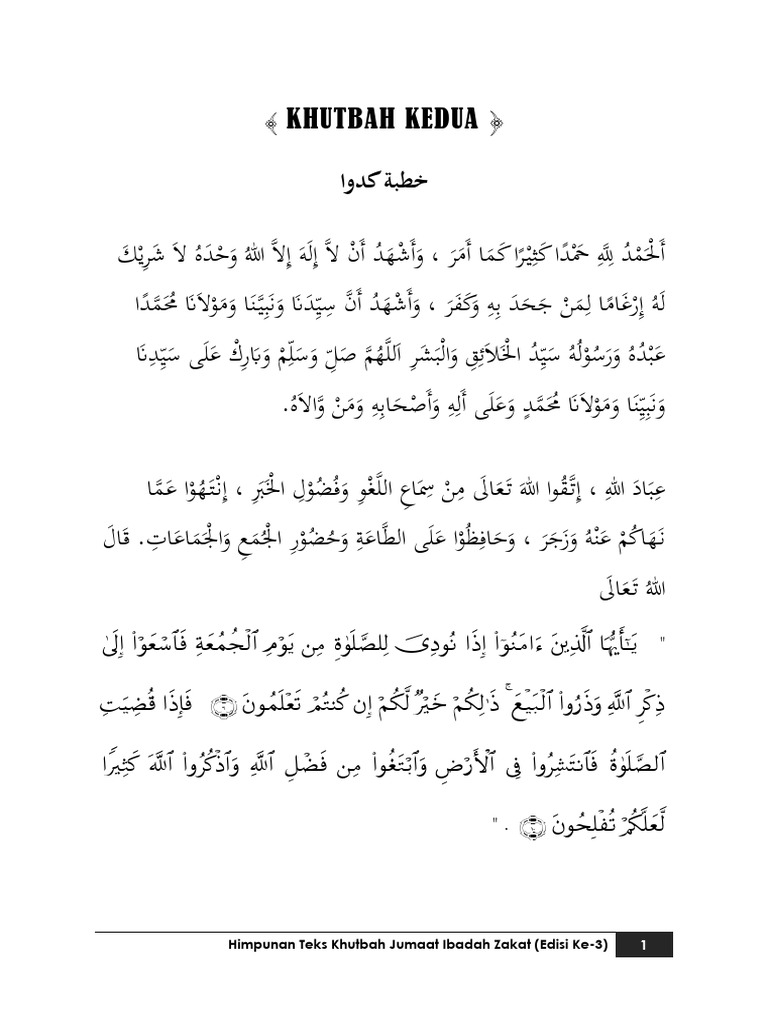 ﴾ KHUTBAH KEDUA ﴿
خطبة كدوا
أَلْحَمْدُ لِلَّهِ حَمْدًا كَثِيْرًا كَمَا أَمَرَ ، وَأَشْهَدُ أَنْ لاَّ إِلَهَ إِلاَّ اللهُ وَحْدَهُ لاَ شَرِيْكَ
لَهُ إِرْغَامًا لِمَنْ جَحَدَ بِهِ وَكَفَرَ ، وَأَشْهَدُ أَنَّ سَيِّدَنَا وَنَبِيَّنَا وَمَوْلَانَا مُحَمَّدًا
عَبْدُهُ وَرَسُوْلُهُ سَيِّدُ الْخَلاَئِقِ وَالْبَشَرِ اَللَّهُمَّ صَلِّ وَسَلِّمْ وَبَارِكْ عَلَى سَيِّدِنَا
وَنَبِيِّنَا وَمَوْلاَنَا مُحَمَّدٍ وَعَلَى أَلِهِ وَأَصْحَابِهِ وَمَنْ وَّالاَهُ.
عِبَادَ اللهِ ، إِتَّقُوا اللهَ تَعَالَى مِنْ سِمَاعِ اللَّغْوِ وَفُضُوْلِ الْخَبَرِ ، إِنْتَهُوْا عَمَّا
نَهَاكُمْ عَنْهُ وَزَجَرَ ، وَحَافِظُوْا عَلَى الطَّاعَةِ وَحُضُوْرِ الْجُمَعِ وَالْجَمَاعَاتِ. قَالَ
اللهُ تَعَالَى
" يَـٰٓأَيُّهَا ٱلَّذِينَ ءَامَنُوٓا۟ إِذَا نُودِىَ لِلصَّلَوٰةِ مِن يَوْمِ ٱلْجُمُعَةِ فَٱسْعَوْا۟ إِلَىٰ
ذِكْرِ ٱللَّهِ وَذَرُوا۟ ٱلْبَيْعَ ۚ ذَٰلِكُمْ خَيْرٌ لَّكُمْ إِن كُنتُمْ تَعْلَمُونَ فَإِذَا قُضِيَتِ
ٱلصَّلَوٰةُ فَٱنتَشِرُوا۟ فِى ٱلْأَرْضِ وَٱبْتَغُوا۟ مِن فَضْلِ ٱللَّهِ وَٱذْكُرُوا۟ ٱللَّهَ كَثِيرًا
لَّعَلَّكُمْ تُفْلِحُونَ . "
Himpunan Teks Khutbah Jumaat Ibadah Zakat (Edisi Ke-3) 1